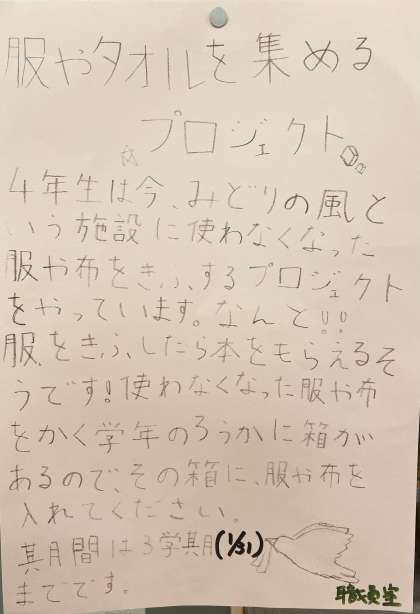 服やタオルを集める
プロジェクト
4年生は今、みどりの風と
いう施設に使わなくなった
服や布をきふ、するプロジェクト
をやっています。なんと!!
服、をきふ、したら本をもらえるそ
うです!使わなくなった服や布
をかく学年のろうかに箱が
あるので、その箱に、服や布を
入れてください。
其月間は3学其月(1/31)
までです。
職員室